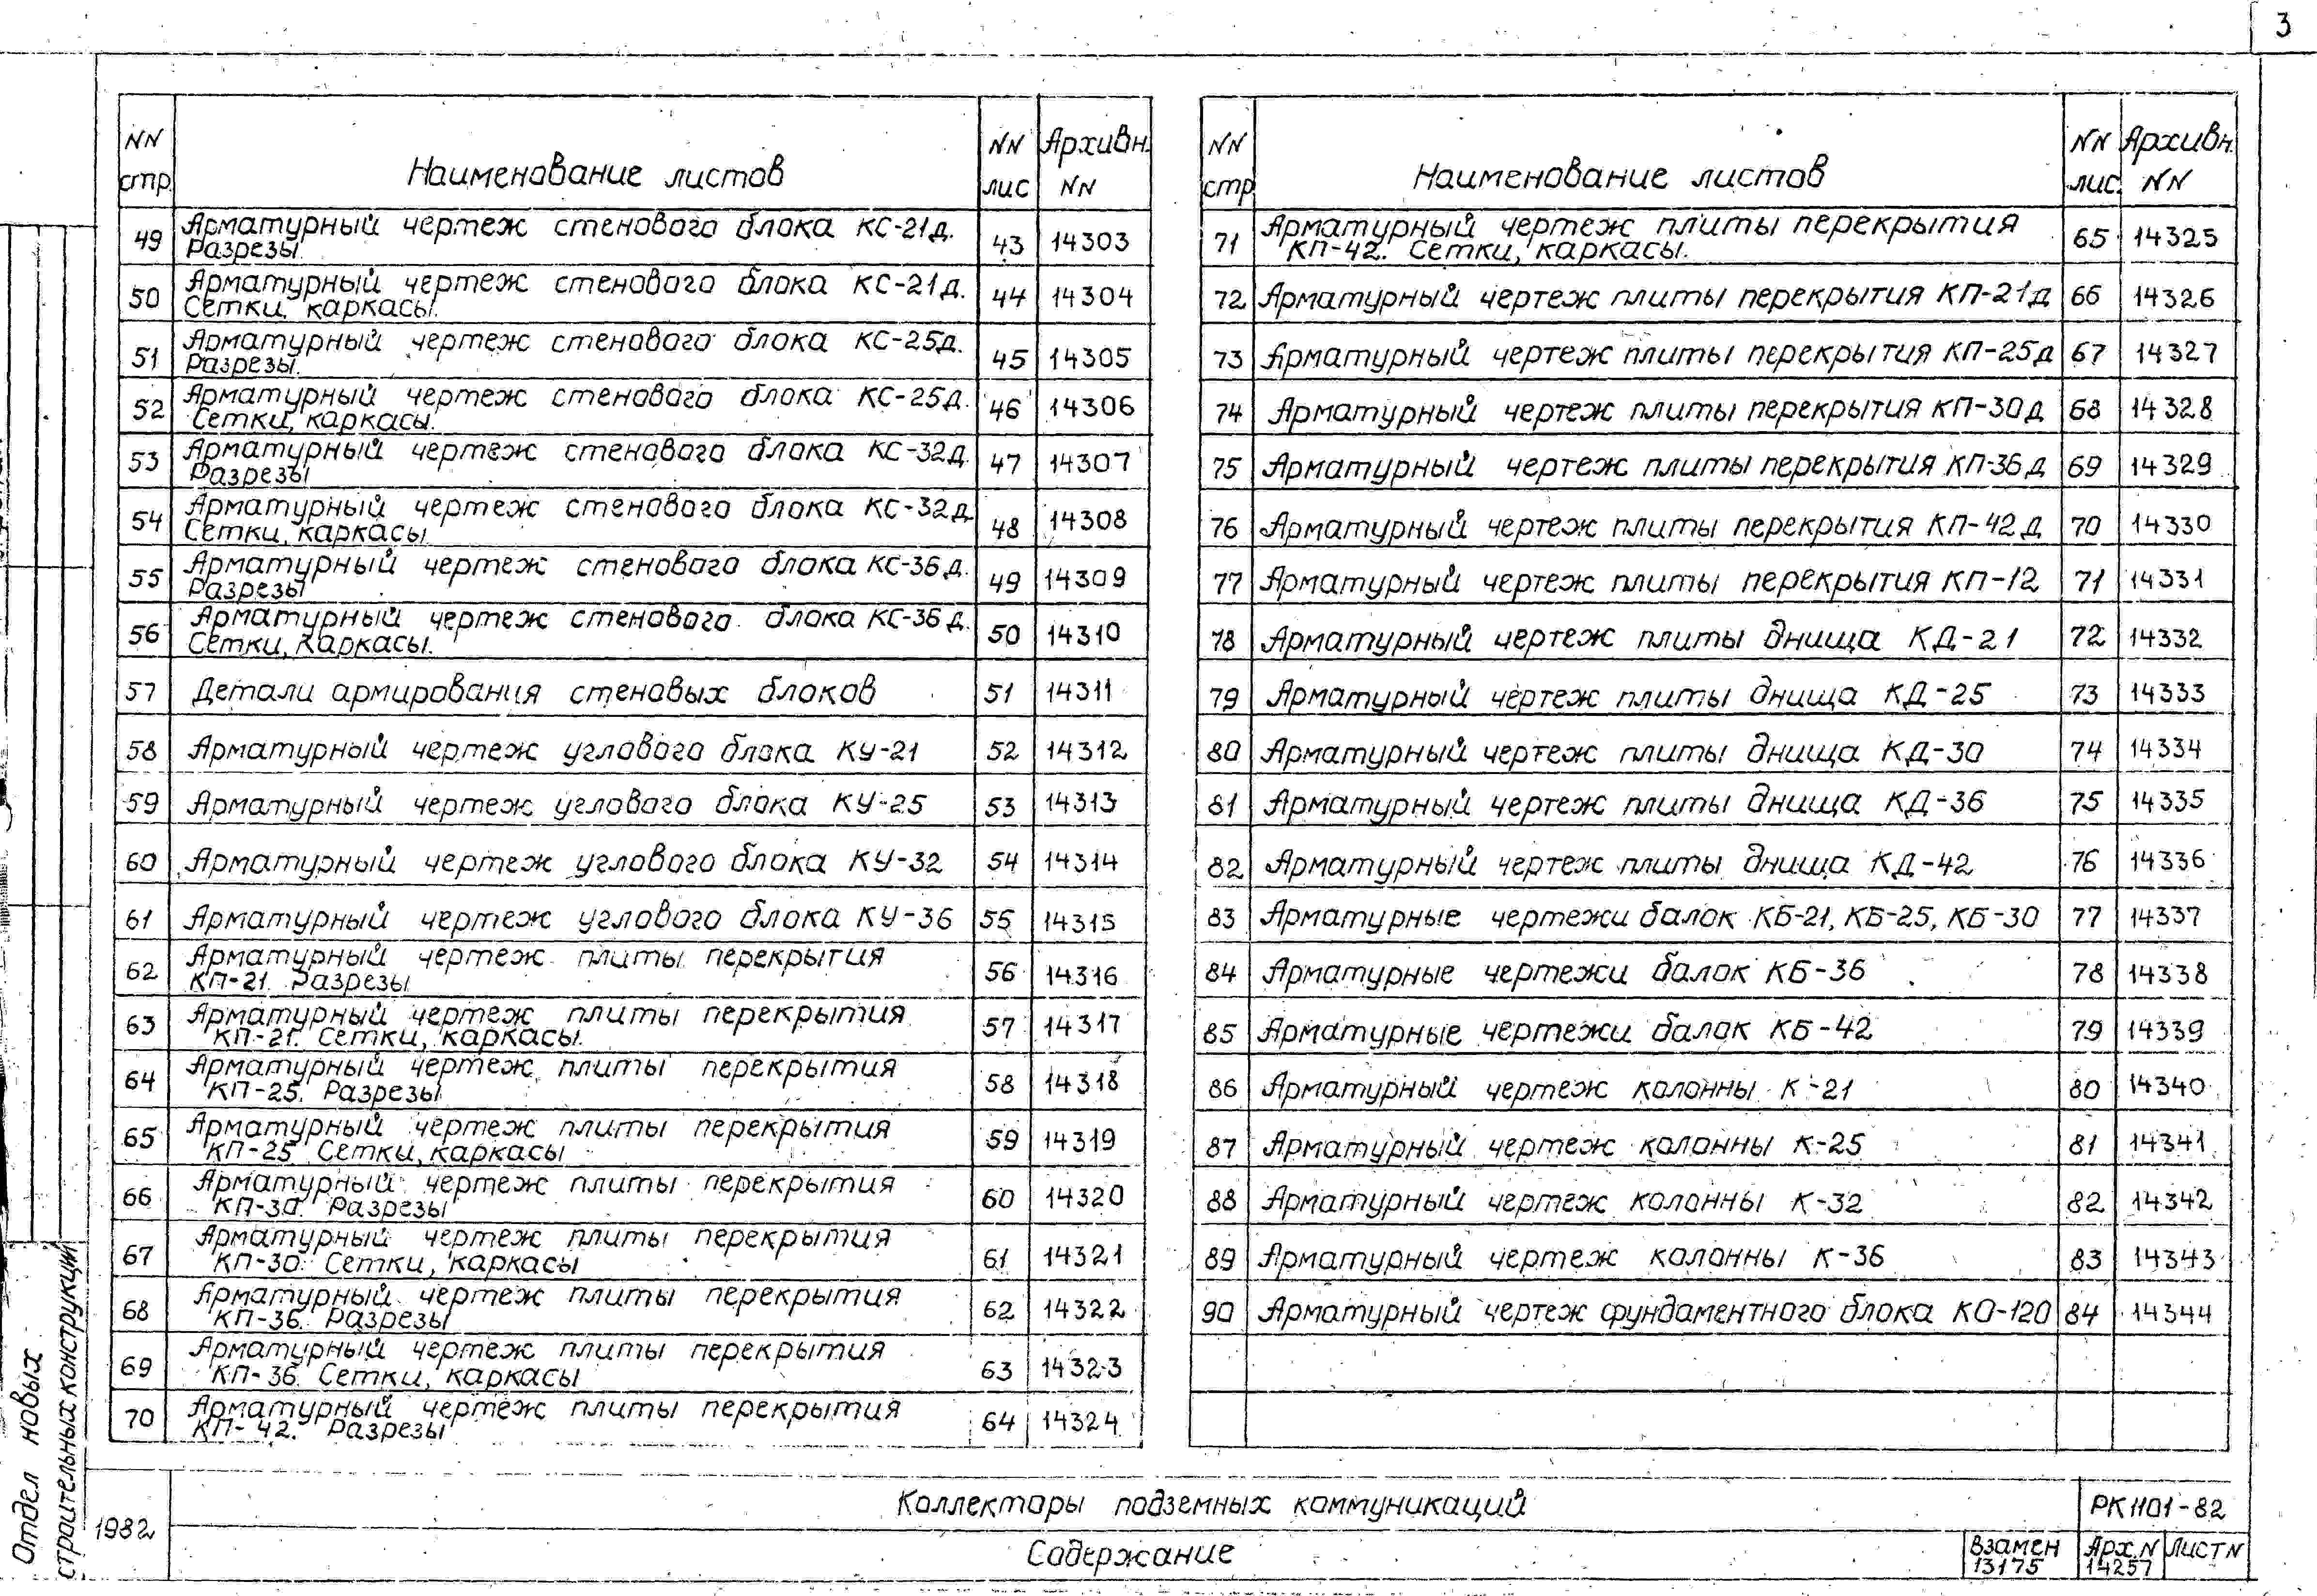 3
NN стр. Наименование листов NN лис Архивн. NN
49 Арматурный чертеж стенового блока КС-21д. Разрезы 43 14303
50 Арматурный чертеж стенового блока КС-21д. Сетки, каркасы. 44 14304
51 Арматурный чертеж стенового блока КС-25д. Разрезы. 45 14305
52 Арматурный чертеж стенового блока КС-25д. Сетки, каркасы. 46 14306
53 Арматурный чертеж стенового блока КС-32д. Разрезы 47 14307
54 Арматурный чертеж стенового блока КС-32д. Сетки, каркасы 48 14308
55 Арматурный чертеж стенового блока КС-36д. Разрезы 49 14309
56 Арматурный чертеж стенового блока КС-36д. Сетки, каркасы. 50 14310
57 Детали армирования стеновых блоков 51 14311
58 Арматурный чертеж углового блока КУ-21 52 14312
59 Арматурный чертеж углового блока КУ-25 53 14313
60 Арматурный чертеж углового блока КУ-32 54 14314
61 Арматурный чертеж углового блока КУ-36 55 14315
62 Арматурный чертеж плиты перекрытия КП-21. Разрезы 56 14316
63 Арматурный чертеж плиты перекрытия КП-21. Сетки, каркасы. 57 14317
64 Арматурный чертеж плиты перекрытия КП-25. Разрезы 58 14318
65 Арматурный чертеж плиты перекрытия КП-25 Сетки, каркасы 59 14319
66 Арматурный чертеж плиты перекрытия КП-30. Разрезы 60 14320
67 Арматурный чертеж плиты перекрытия КП-30. Сетки, каркасы 61 14321
68 Арматурный чертеж плиты перекрытия КП-36. Разрезы 62 14322
69 Арматурный чертеж плиты перекрытия КП-36. Сетки, каркасы 63 14323
70 Арматурный чертеж плиты перекрытия КП-42. Разрезы 64 14324
NN стр Наименование листов NN лис. Архивн. NN
71 Арматурный чертеж плиты перекрытия КП-42. Сетки, каркасы. 65 14325
72 Арматурный чертеж плиты перекрытия КП-21д 66 14326
73 Арматурный чертеж плиты перекрытия КП-25д 67 14327
74 Арматурный чертеж плиты перекрытия КП-30д 68 14328
75 Арматурный чертеж плиты перекрытия КП-36д 69 14329
76 Арматурный чертеж плиты перекрытия КП-42д 70 14330
77 Арматурный чертеж плиты перекрытия КП-12 71 14331
78 Арматурный чертеж плиты днища КД-21 72 14332
79 Арматурный чертеж плиты днища КД-25 73 14333
80 Арматурный чертеж плиты днища КД-30 74 14334
81 Арматурный чертеж плиты днища КД-36 75 14335
82 Арматурный чертеж плиты днища КД-42 76 14336
83 Арматурные чертежи балок КБ-21, КБ-25, КБ-30 77 14337
84 Арматурные чертежи балок КБ-36 78 14338
85 Арматурные чертежи балок КБ-42 79 14339
86 Арматурный чертеж колонны К-21 80 14340
87 Арматурный чертеж колонны К-25 81 14341
88 Арматурный чертеж колонны К-32 82 14342
89 Арматурный чертеж колонны К-36 83 14343
90 Арматурный чертеж фундаментного блока КО-120 84 14344
Отдел новых
строительных конструкций
1982
Коллекторы подземных коммуникаций
РК1101-82
Содержание
Взамен 13175
Арх.N 14257
Лист N